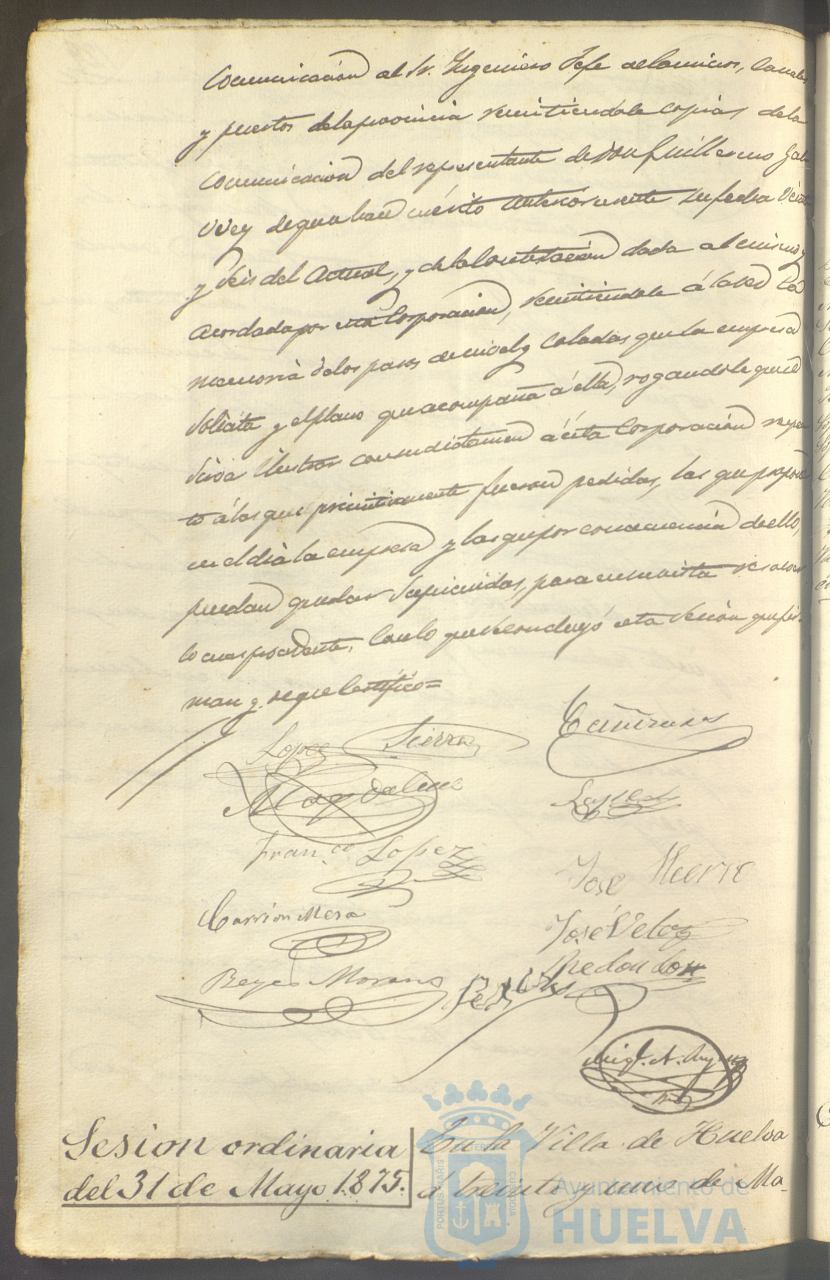 Comunicación al Sr. Ingeniero Jefe de Caminos, Canales
y puertos de la provincia remitiendole copias de la
Comunicacion del representante de Don Guillermo
de que hace mérito anteriormente su fecha Veinte
y seis del actual, y de la Contestación dada al mismo y
acordada por esta Corporación, remitiendole á la vez la
memoria de los pasos de nivel y Coladas que la empresa
Solicita y el plano que acompaña á ella, rogandole que se
sirva Ilustrar con su dictamen á ésta Corporación respec
to á los que primitivamente fueron pedidos, los que propone
en el dia la empresa y los que por consecuencia de ello,
puedan quedar Suprimidos, para en su vista resolver
lo mas procedente. Con lo que se concluyó esta Sesion que fir-
man y de que Certifico=
Lopez Sierra
Cañizares
Magdalena
Lopez
Fran.co Lopez
José
Carrion Mesa
José Veloz
Redondo
Reyes Moreno
Sesion ordinaria
del 31 de Mayo 1875.
En la Villa de Huelva
á treinta y uno de Ma-
Ayuntamiento de
HUELVA